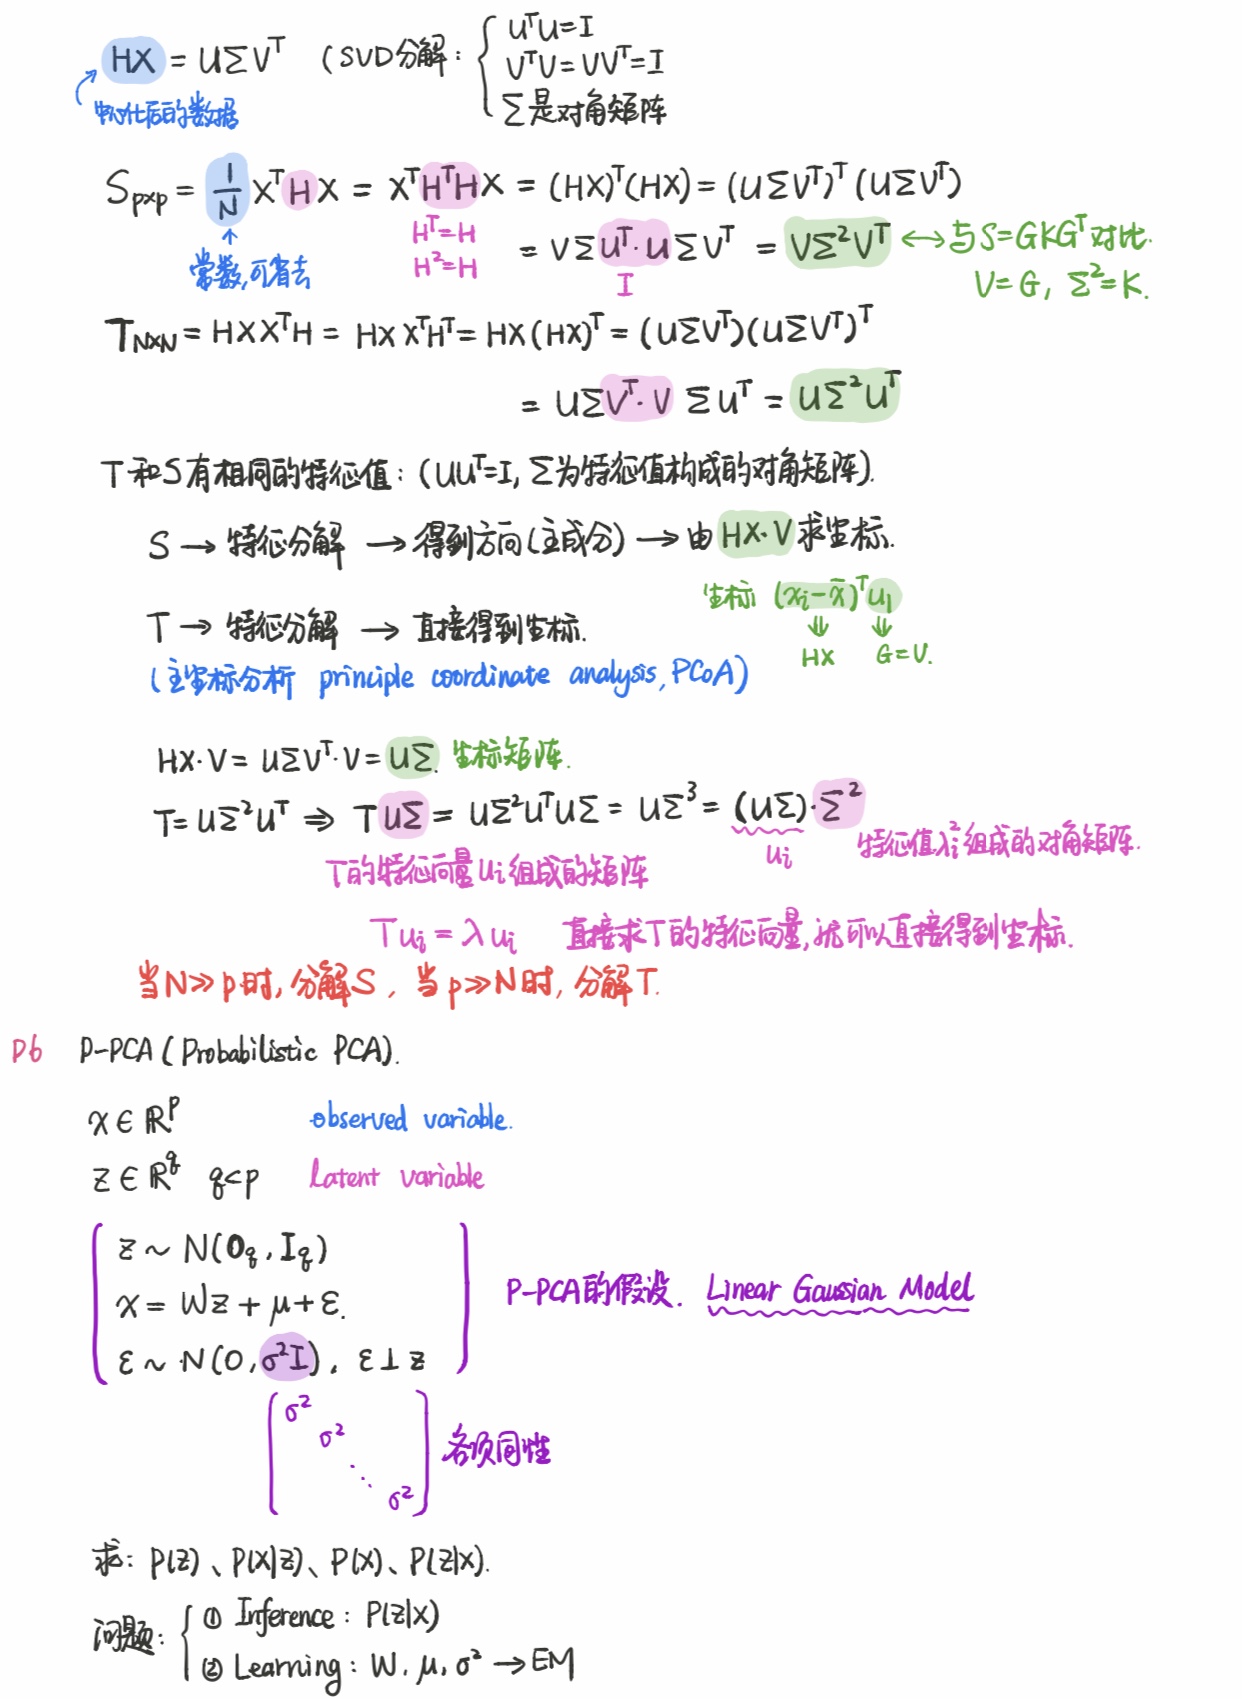 HX = UΣVᵀ (SVD分解: { UᵀU=I
VᵀV=VVᵀ=I
Σ是对角矩阵
中心化后的数据
S_{p×p} = 1/N XᵀHX = XᵀHᵀHX = (HX)ᵀ(HX) = (UΣVᵀ)ᵀ(UΣVᵀ)
常数,可省去
Hᵀ=H
H²=H
= VΣUᵀ·UΣVᵀ = VΣ²Vᵀ ↔ 与S=GKGᵀ对比.
I
V=G, Σ²=K.
T_{N×N} = HXXᵀH = HXXᵀHᵀ = HX(HX)ᵀ = (UΣVᵀ)(UΣVᵀ)ᵀ
= UΣVᵀ·VΣUᵀ = UΣ²Uᵀ
T和S有相同的特征值: (UUᵀ=I, Σ为特征值构成的对角矩阵).
S → 特征分解 → 得到方向(主成分) → 由HX·V求坐标.
坐标 (xᵢ-x̄)ᵀu₁
⇓ ⇓
HX G=V.
T → 特征分解 → 直接得到坐标.
(主坐标分析 principle coordinate analysis, PCoA)
HX·V = UΣVᵀ·V = UΣ. 坐标矩阵.
T=UΣ²Uᵀ ⇒ TUΣ = UΣ²UᵀUΣ = UΣ³ = (UΣ)·Σ²
uᵢ
特征值λᵢ²组成的对角矩阵.
T的特征向量uᵢ组成的矩阵
Tuᵢ = λuᵢ 直接求T的特征向量,就可以直接得到坐标.
当N≫p时,分解S, 当p≫N时,分解T.
P6 P-PCA (Probabilistic PCA).
x∈ℝᵖ observed variable.
z∈ℝ^q q<p latent variable
z ~ N(0_q, I_q)
x = Wz + μ + ε.
ε ~ N(0, σ²I), ε⊥z
P-PCA的假设. Linear Gaussian Model
σ²
σ²
⋱
σ²
各项同性
求: P(z)、P(x|z)、P(x)、P(z|x).
问题: { ① Inference: P(z|x)
② Learning: W, μ, σ² → EM